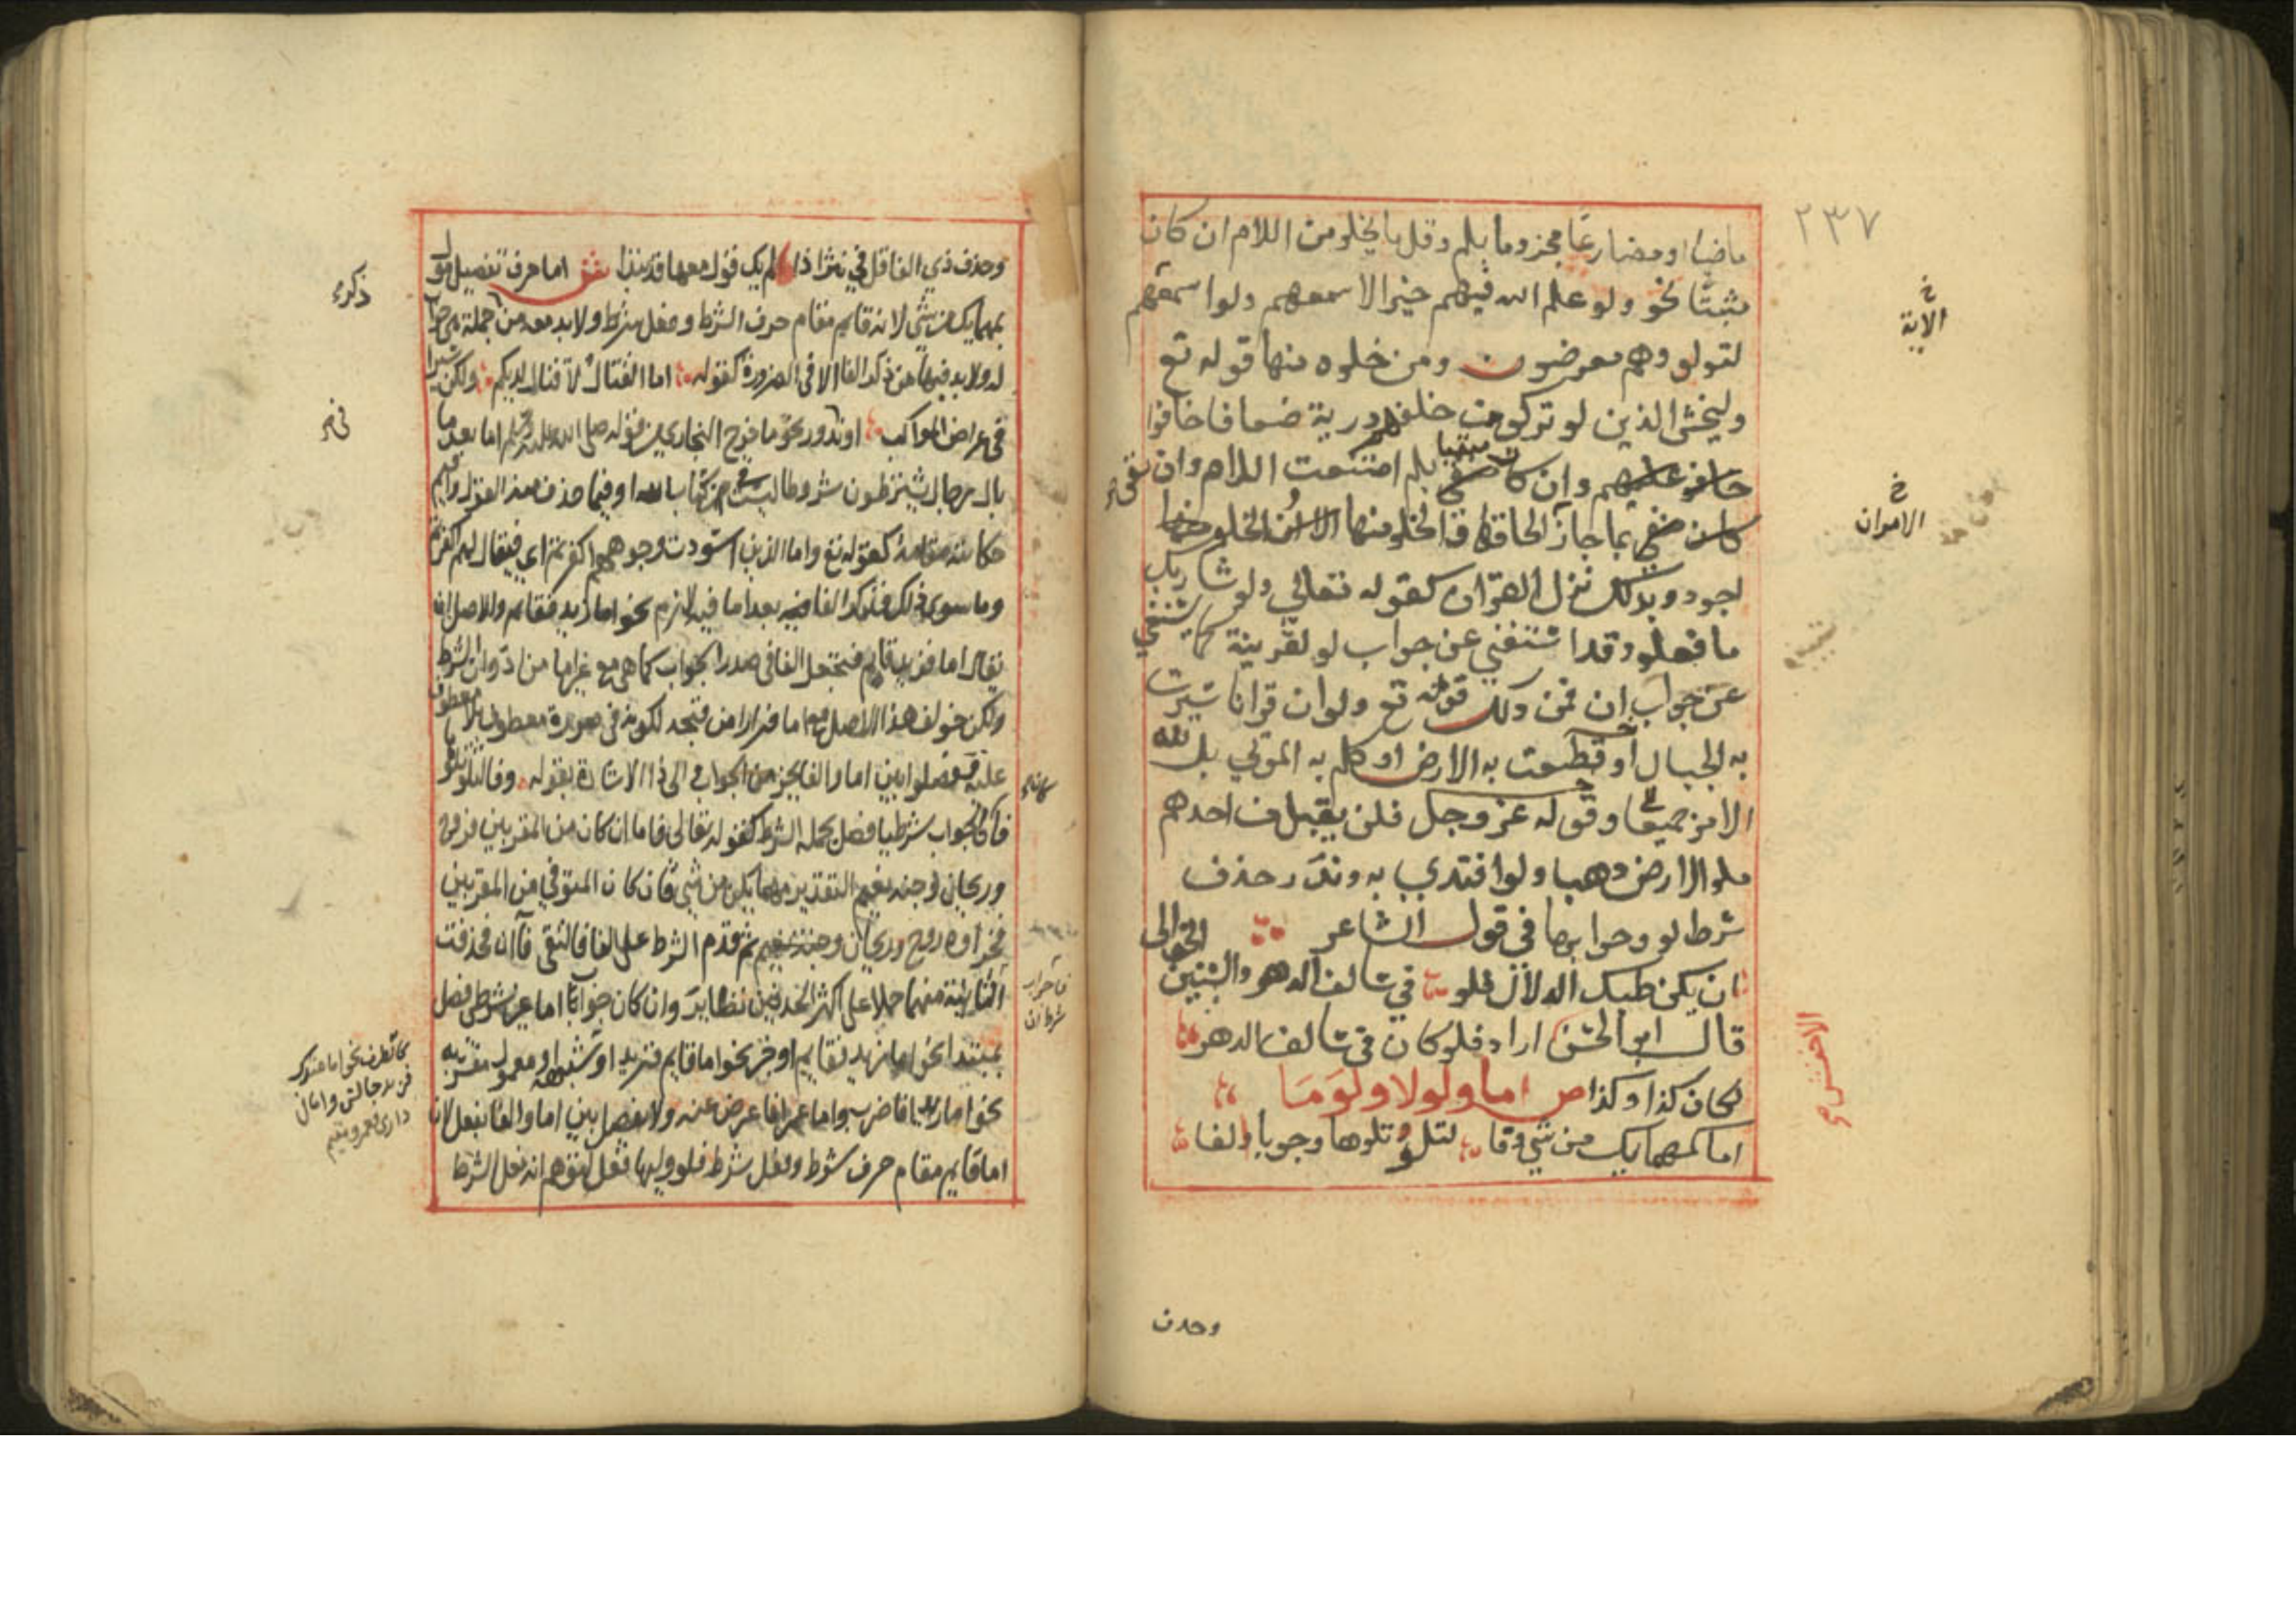 ٢٣٧
ماضيا او مضارعا مجزوما بلم وقل ما يخلو من اللام ان كان
مثبتا نحو ولو علم الله فيهم خيرا لاسمعهم ولو اسمعهم
لتولوا وهم معرضون ومن خلوه منها قوله تع
وليخش الذين لو تركوا من خلفهم ذرية ضعافا خافوا
خافو عليهم وان كان منفيا بلم امتنعت اللام وان نفى
كان منفي بما جاز الحاقها والخلو منها الا ان الخلو منها
اجود وبذلك نزل القران كقوله تعالى ولو شا ربك
ما فعلوه وقد استغني عن جواب لو لقرينة كما يستغني
عن جواب ان فمن ذلك قوله تع ولو ان قرانا سيرت
به الجبال او قطعت به الارض او كلم به الموتي بل لله
الامر جميعا وقوله عز وجل فلن يقبل من احدهم
ملو الارض ذهبا ولو افتدي به وندر حذف
شرط لو وجوابها في قول الشاعر
ان يكن طبك الدلال فلو في سالف الدهر والسنين الخوالى
قال ابو الحسن اراد فلو كان في سالف الدهر
لكان كذا وكذا ص اما ولولا ولوما
اما كمهما يك من شي وفا لتلو تلوها وجوبا الفا
الاية
الاخفش
وحذف
وحذف ذي الفا قل في نثر اذا لم يك قول معها قد نبذا ش اما حرف تفصيل مؤول
بمهما يك من شي لانه قايم مقام حرف الشرط وفعل شرط ولا بد معه من جملة هي جواب
له ولا بد فيها من ذكر الفا الا في الضرورة كقوله اما القتال لا قتال لديكم ولكن سيرا
في عراض المواكب او ندور نحو ما خرج البخاري من قوله صلى الله عليه وسلم اما بعد ما
بال رجال يشترطون شروطا ليست في كتاب الله او فيما حذف منه القول واقيم
حكايته مقامه كقوله تع واما الذين اسودت وجوههم اكفرتم اي فيقال لهم اكفرتم
وما سوى ذلك فذكر الفا فيه بعد اما فيه لازم نحو اما زيد فقايم والاصل ان
يقال اما فزيد قايم فتجعل الفا في صدر الجواب كما هي مع غيرها من ادوات الشرط
ولكن خولف هذا الاصل مع اما فرارا من قبحه لكونه في صورة معطوف بلا معطوف
عليه ففصلوا بين اما والفا بجزء من الجواب والى ذا الاشارة بقوله وفا لتلو تلوها
فان كان الجواب شرطيا فصل بجملة الشرط كقوله تعالى فاما ان كان من المقربين فروح
وريحان وجنة نعيم التقدير مهما يكن من شي فان كان المتوفي من المقربين
فجزاوه روح وريحان وجنة نعيم ثم قدم الشرط على الفا فالتقى فاان فحذفت
الثانية منهما حملا على اكثر الحذفين نظاير وان كان جواب اما غير شرطي فصل
بمبتدا نحو اما زيد فقايم او خبر نحو اما قايم فزيد او معمول
نحو اما زيدا فاضرب واما عمرا فاعرض عنه ولا يفصل بين اما والفا بفعل لان
اما قايم مقام حرف شرط وفعل شرط فلو وليها فعل لتوهم انه فعل الشرط
ذكره